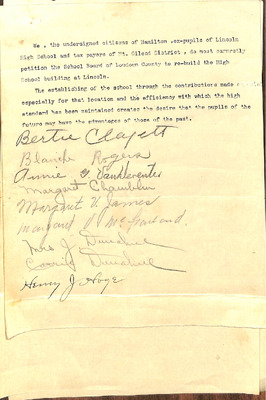 We , the undersigned citizens of Hamilton ,ex-pupils of Lincoln
High School and tax payers of Mt. Gilead District , do most earnestly
petition the School Board of Loudoun County to re-build the High
School building at Lincoln.
The establishing of the school through the contributions made
especially for that location and the efficiency with which the high
standard has been maintained creates the desire that the pupils of the
future may have the advantages of those of the past.
Bertie Clagett
Blanche Rogers
Annie V. Vandeventer
Margaret Chamblin
Margaret V. James
Margaret McFarland
Mrs J. Donohue
Carrie Donohue
Henry J. Hoge